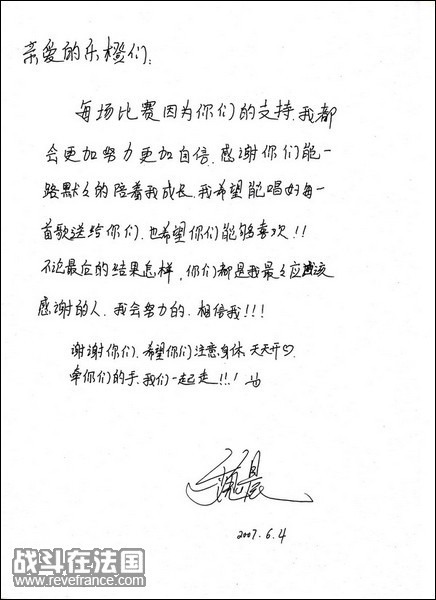 亲爱的乐橙们:
每场比赛因为你们的支持、我都
会更加努力更加自信.感谢你们能一
路默々的陪着我成长.我希望能唱好每一
首歌送给你们.也希望你们能够喜欢!!
不论最后的结果怎样,你们都是我最々应该
感谢的人.我会努力的.相信我!!!
谢谢你们.希望你们注意身体.天天开♡.
牵你们的手.我们一起走!!!
魏晨
2007.6.4
战斗在法国
www.revefrance.com